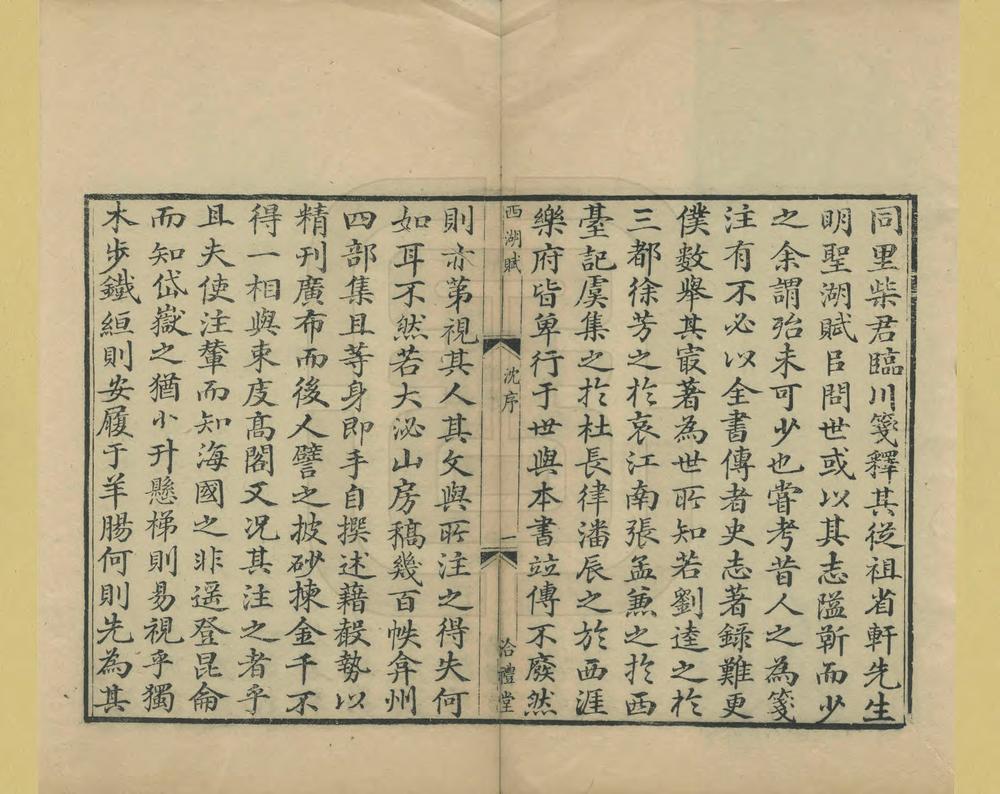 同里柴君臨川箋釋其從祖省軒先生
明聖湖賦㠯問世或以其志隘斬而少
之余謂殆未可少也嘗考昔人之為箋
注有不必以全書傳者史志著錄難更
僕數舉其㝡著為世所知若劉逵之於
三都徐芳之於哀江南張孟兼之於西
臺記虞集之於杜長律潘辰之於西涯
樂府皆單行于世與本書竝傳不廢然
西湖賦 沈序 一 洽禮堂
則亦苐視其人其文與所注之得失何
如耳不然若大泌山房稿幾百帙弇州
四部集且等身即手自撰述藉轂勢以
精刊廣布而後人譬之披砂揀金千不
得一相與束庋高閣又况其注之者乎
且夫使注輦而知海國之非遥登昆侖
而知岱嶽之猶小升懸梯則易視乎獨
木步鐵絙則安履于羊腸何則先為其